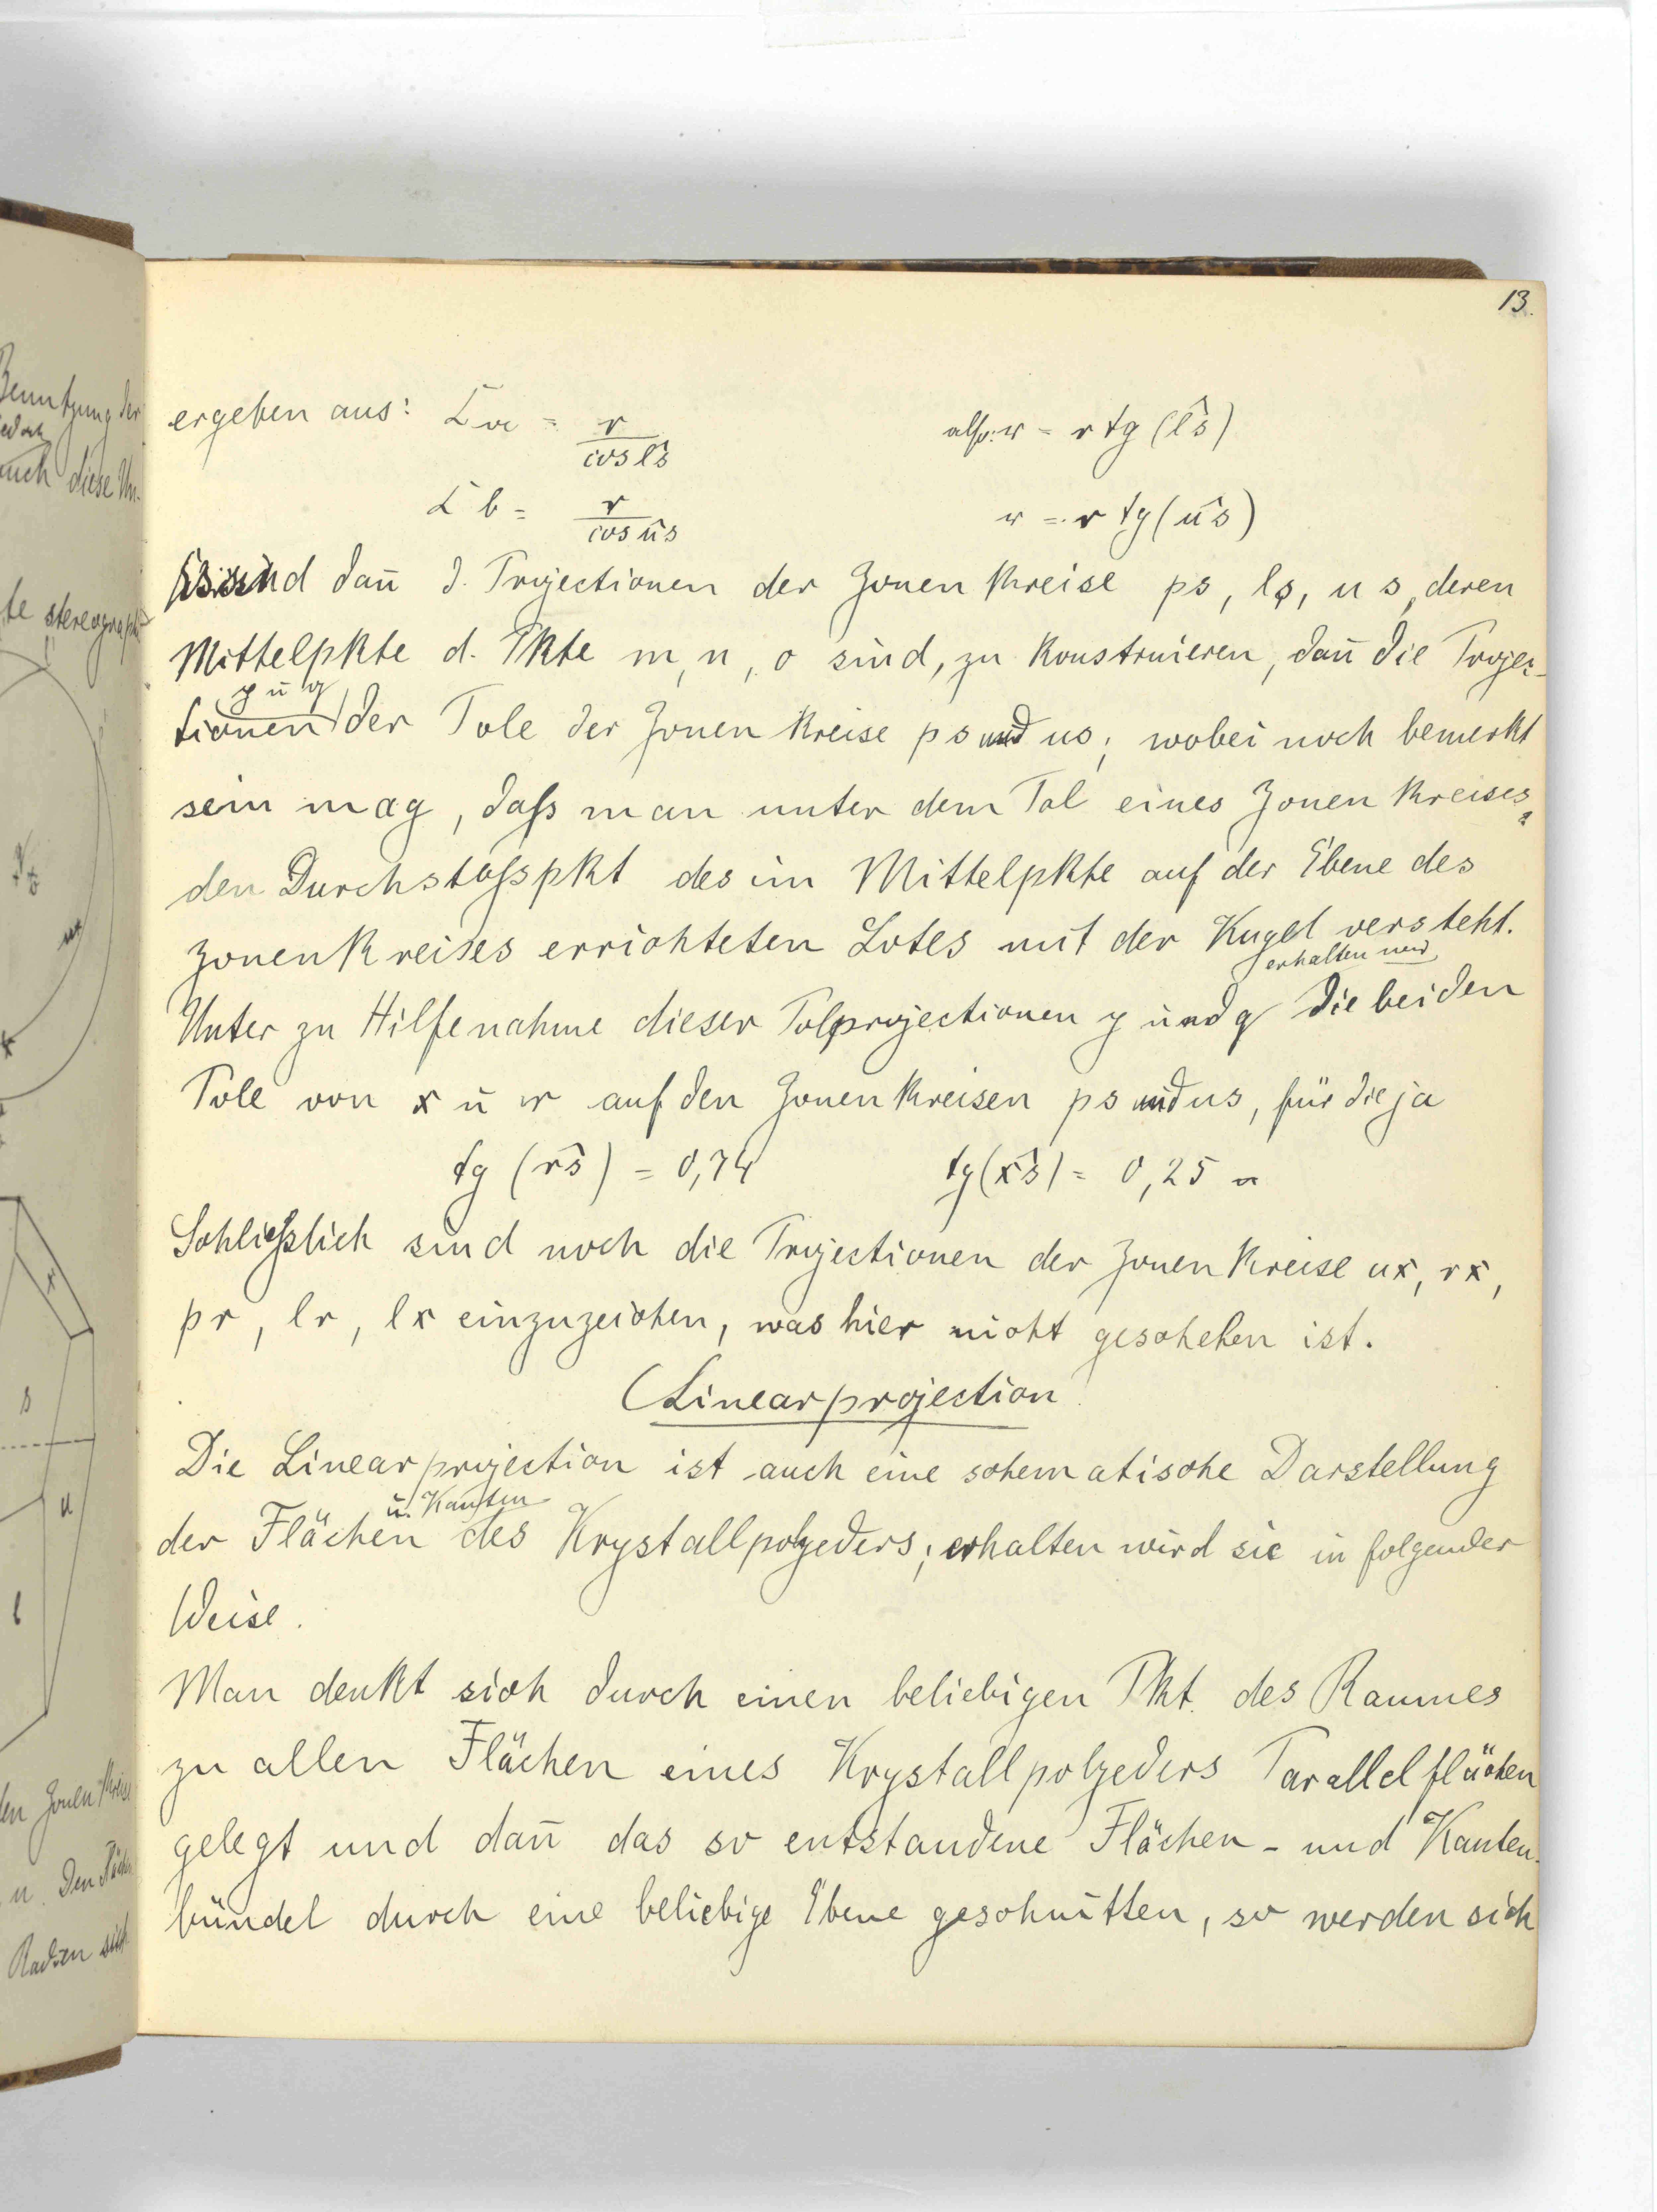 13.
ergeben aus: La = r / cos l̂s also: r = r tg (l̂s)
L b = r / cos ûs r = r tg (ûs)
Es sind dan̄ d. Projectionen der Zonenkreise ps, ls, us, deren
Mittelpkte d. Pkte m, n, o sind, zu konstruieren, dan̄ die Projec-
y ū q
tionen der Pole der Zonenkreise ps und us; wobei noch bemerkt
sein mag, daſs man unter dem Pol eines Zonenkreises
den Durchstoſspkt des im Mittelpkte auf der Ebene des
Zonenkreises errichteten Lotes mit der Kugel versteht.
erhalten wird
Unter zu Hilfenahme dieser Polprojectionen y und q die beiden
Pole von x ū r auf den Zonenkreisen ps und us, für die ja
tg (r̂s) = 0,74 tg (x̂s) = 0,25
Schlieſslich sind noch die Projectionen der Zonenkreise ux, rx,
pr, lr, lx einzuzeichen, was hier nicht geschehen ist.
Linearprojection
Die Linearprojection ist auch eine schematische Darstellung
ū. Kanten
der Flächen des Krystallpolyeders; erhalten wird sie in folgender
Weise.
Man denkt sich durch einen beliebigen Pkt. des Raumes
zu allen Flächen eines Krystallpolyeders Parallelflächen
gelegt und dan̄ das so entstandene Flächen- und Kanten-
bündel durch eine beliebige Ebene geschnitten, so werden sich